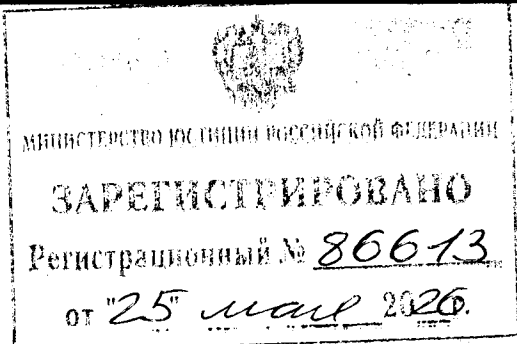 МИНИСТЕРСТВО ЮСТИЦИИ РОССИЙСКОЙ ФЕДЕРАЦИИ
ЗАРЕГИСТРИРОВАНО
Регистрационный № 86613
от "25" мая 2026.